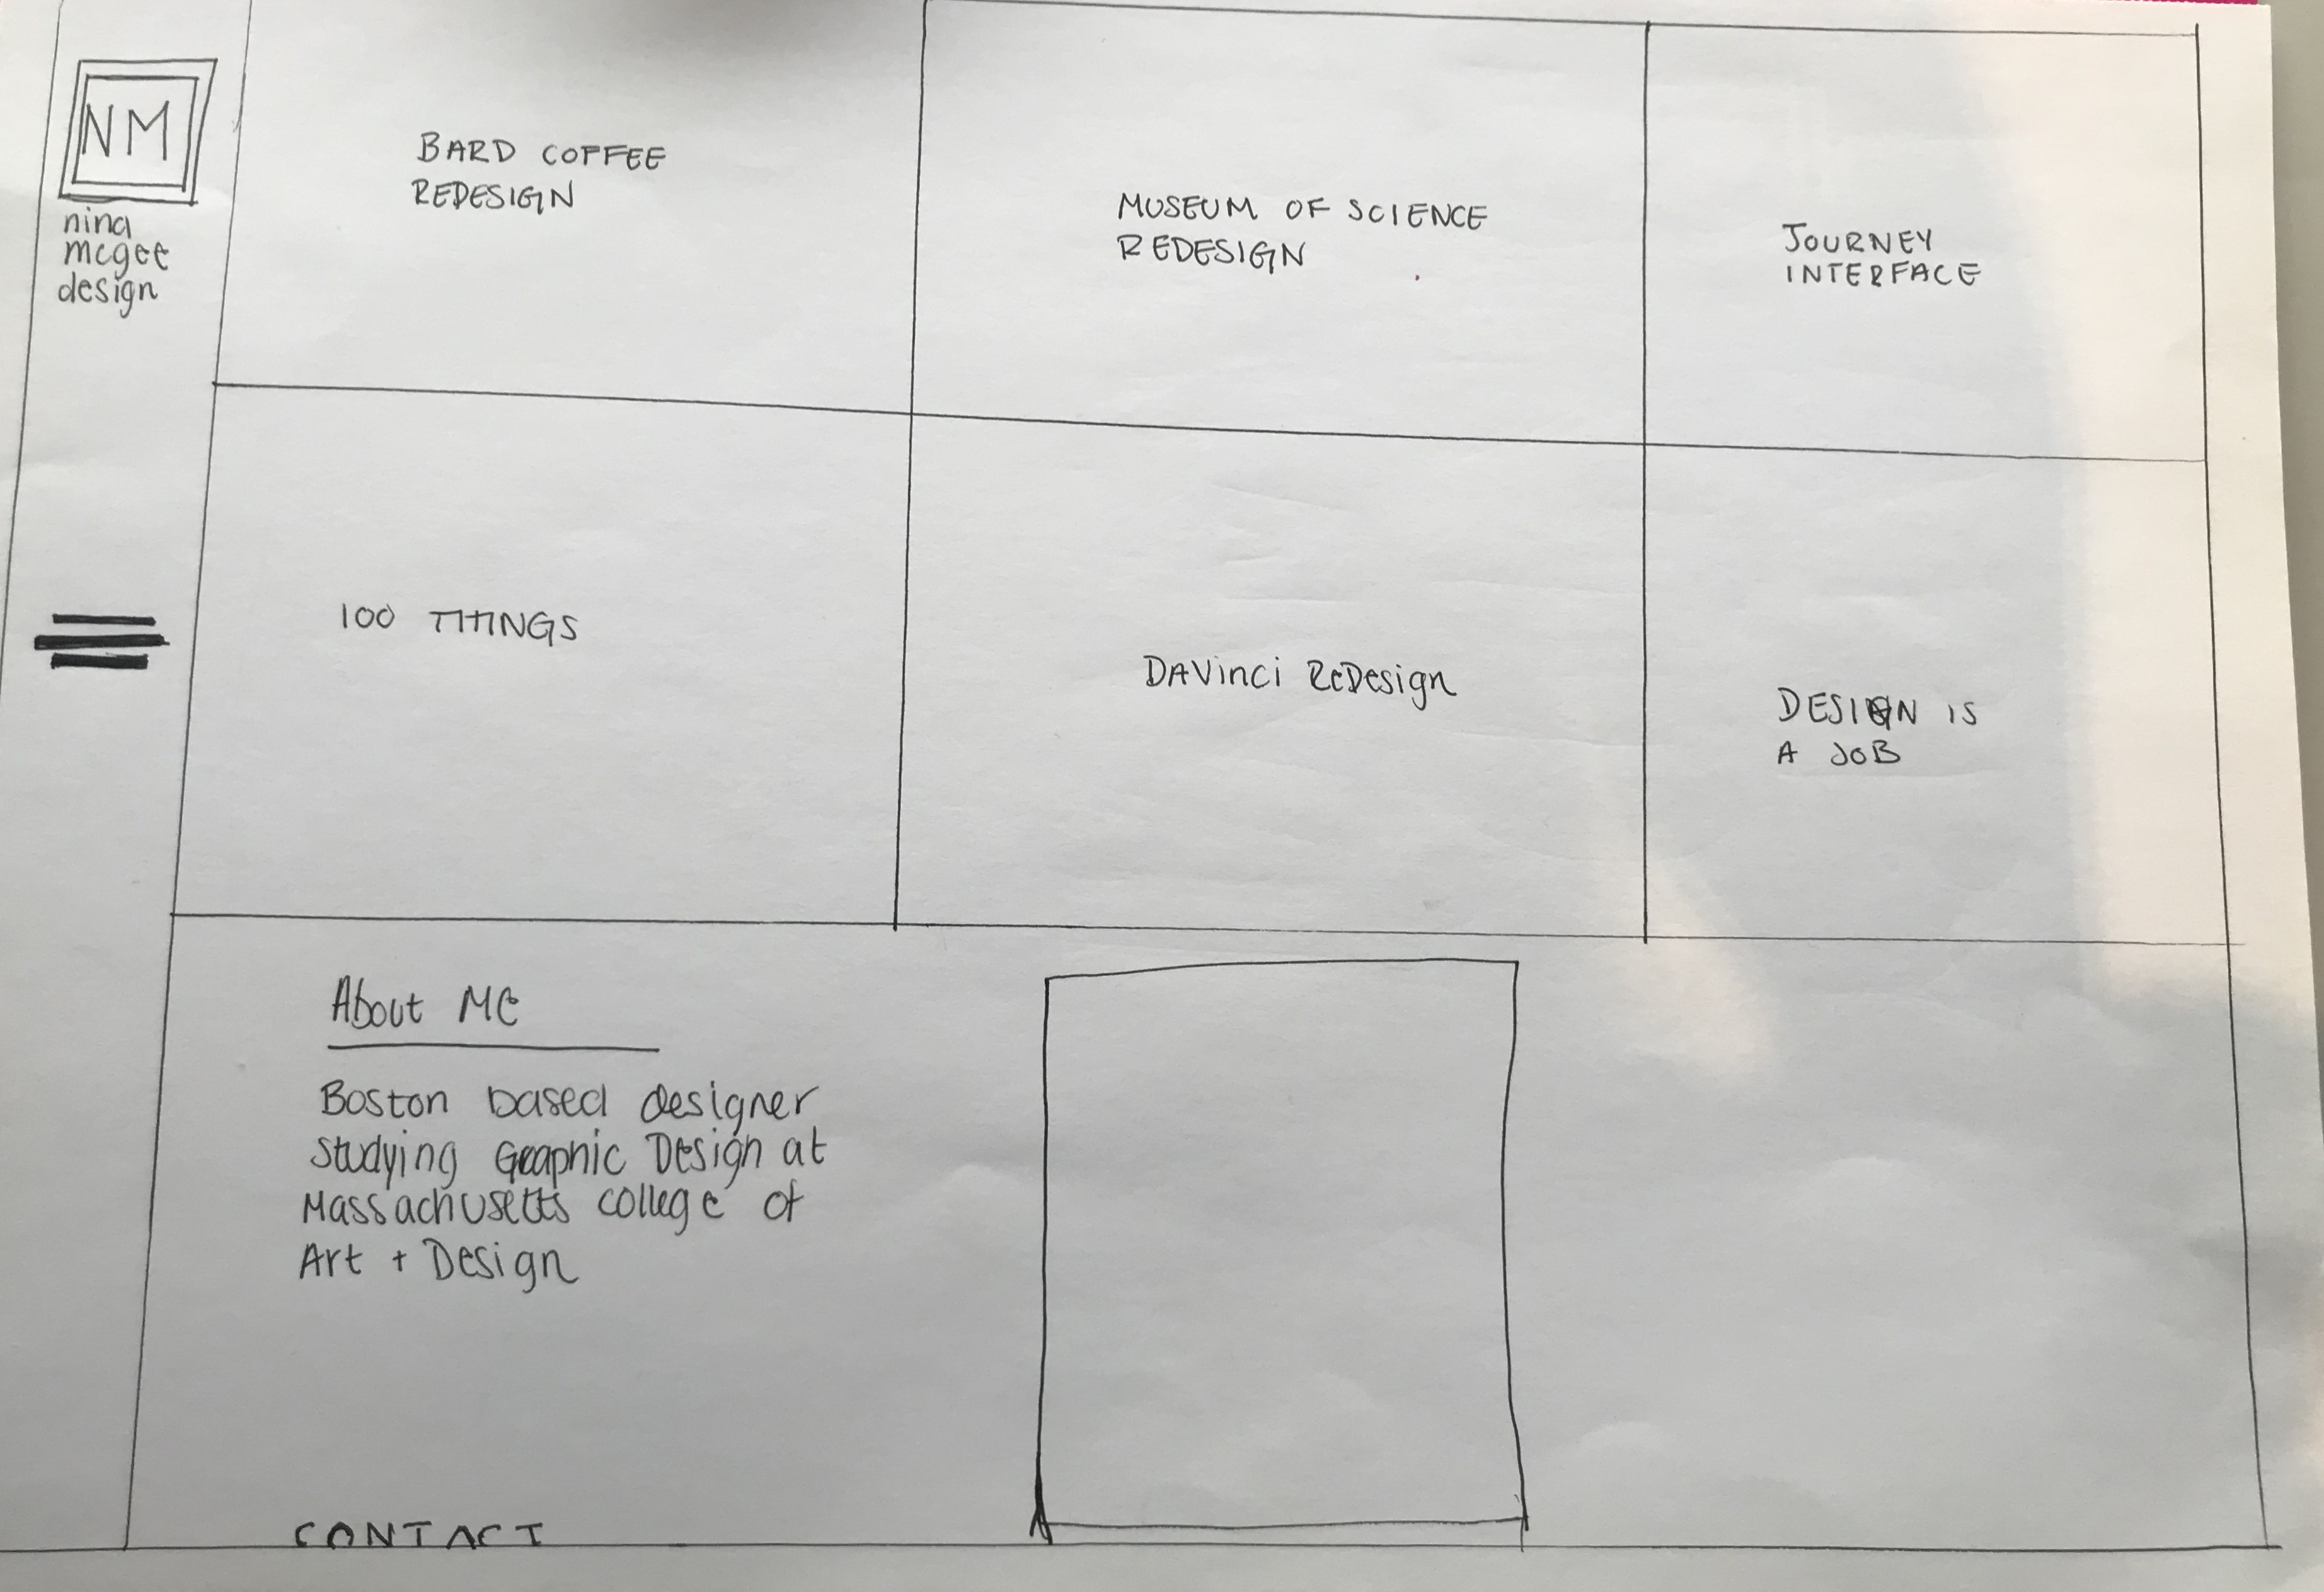 NM
nina
mcgee
design
BARD COFFEE
REDESIGN
MUSEUM OF SCIENCE
REDESIGN
JOURNEY
INTERFACE
100 THINGS
DAVinci ReDesign
DESIGN IS
A JOB
About Me
Boston based designer
studying Graphic Design at
Massachusetts college of
Art + Design
CONTACT